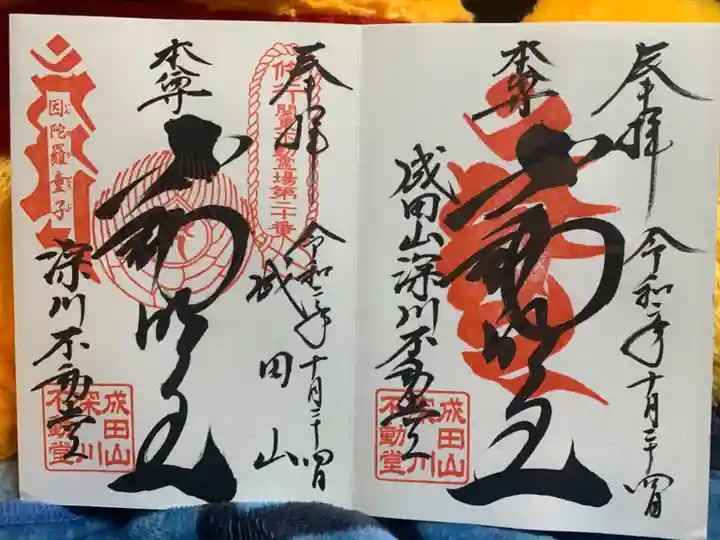 奉拝
令和二年十月二十四日
本尊
不動明王
成田山深川不動堂
成田山
深川
不動堂
奉拝
令和二年十月二十四日
成田山
修行
関東不動霊場第二十番
本尊
不動明王
因陀羅童子
深川不動堂
成田山
深川
不動堂